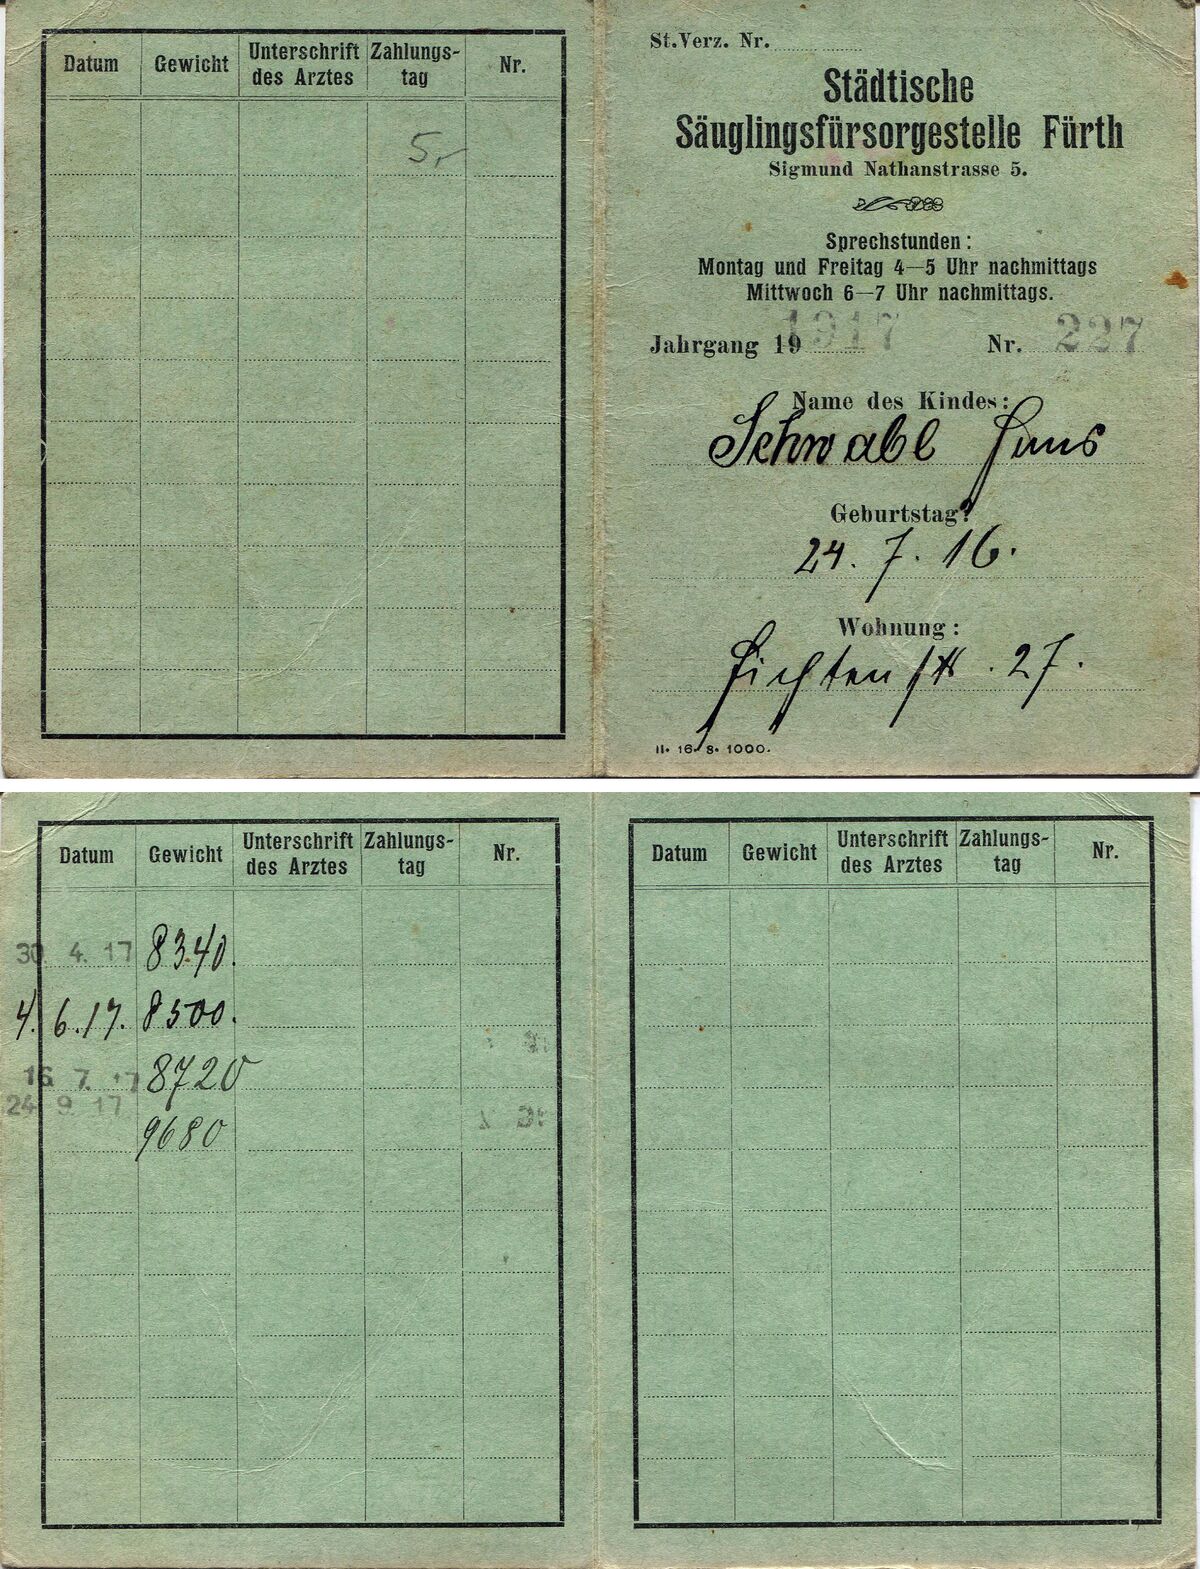 Datum Gewicht Unterschrift des Arztes Zahlungs-tag Nr.
5,-
St.Verz. Nr.
Städtische
Säuglingsfürsorgestelle Fürth
Sigmund Nathanstrasse 5.
Sprechstunden:
Montag und Freitag 4—5 Uhr nachmittags
Mittwoch 6—7 Uhr nachmittags.
Jahrgang 19 1917 Nr. 227
Name des Kindes:
Schwabl Hans
Geburtstag:
24. 7. 16.
Wohnung:
Fichtenstr. 27.
II. 16. 8. 1000.
Datum Gewicht Unterschrift des Arztes Zahlungs-tag Nr.
30. 4. 17 8340.
4. 6. 17. 8500.
16. 7. 17 8720
24. 9. 17 9680
Datum Gewicht Unterschrift des Arztes Zahlungs-tag Nr.